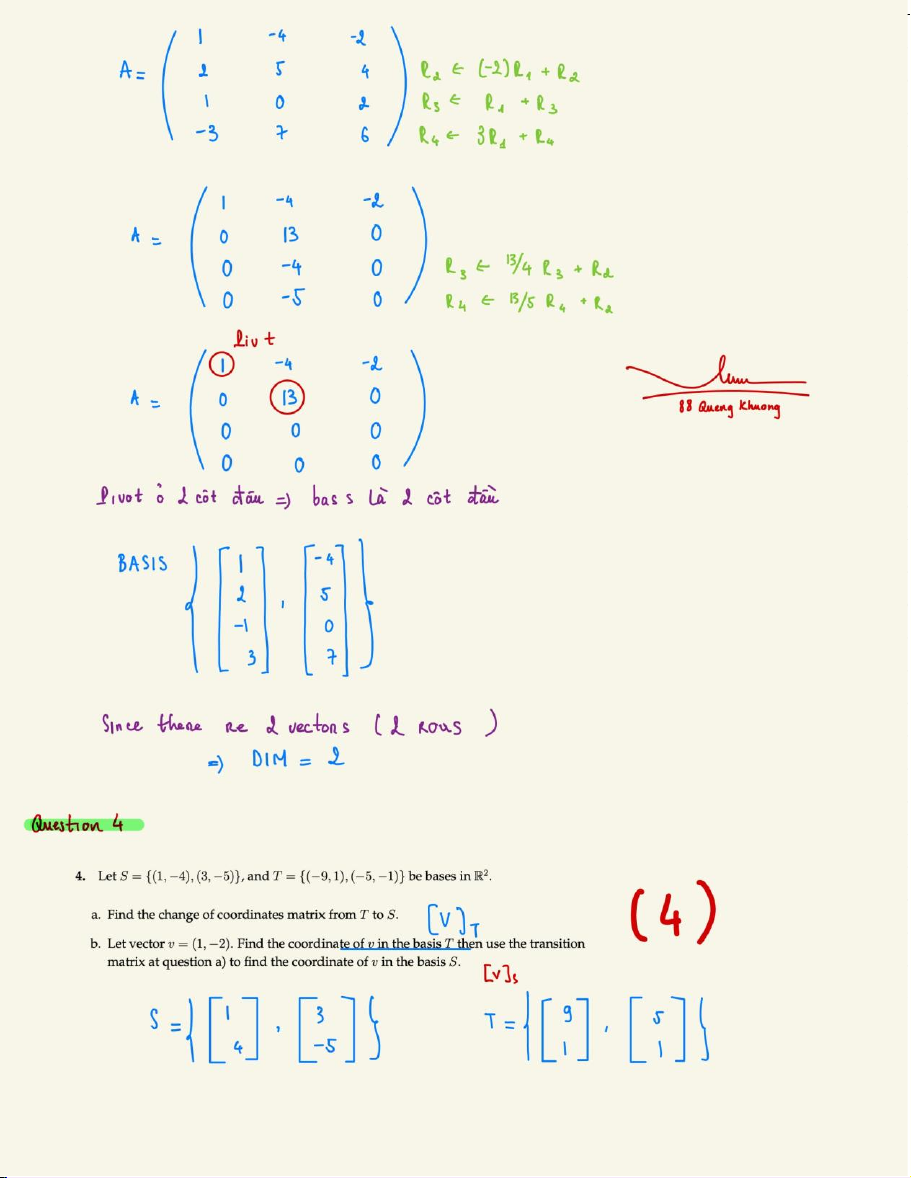 1 -4 -2
A = 2 5 4 R₂ ← (-2)R₁ + R₂
1 0 2 R₃ ← R₁ + R₃
-3 7 6 R₄ ← 3R₁ + R₄
1 -4 -2
A = 0 13 0
0 -4 0 R₃ ← 13/4 R₃ + R₂
0 -5 0 R₄ ← 13/5 R₄ + R₂
Pivot
1 -4 -2
A = 0 13 0
0 0 0
0 0 0
88 Quang Khuong
Pivot ở 2 cột đầu => bas s là 2 cột đầu
BASIS { [1 2 -1 3] , [-4 5 0 7] }
Since there re 2 vectors (2 rows)
=> DIM = 2
Question 4
4. Let S = {(1, −4), (3, −5)}, and T = {(−9, 1), (−5, −1)} be bases in ℝ².
a. Find the change of coordinates matrix from T to S. [V]T
(4)
b. Let vector v = (1, −2). Find the coordinate of v in the basis T then use the transition
matrix at question a) to find the coordinate of v in the basis S. [v]s
S = { [1 4] , [3 -5] } T = { [9 1] , [5 1] }